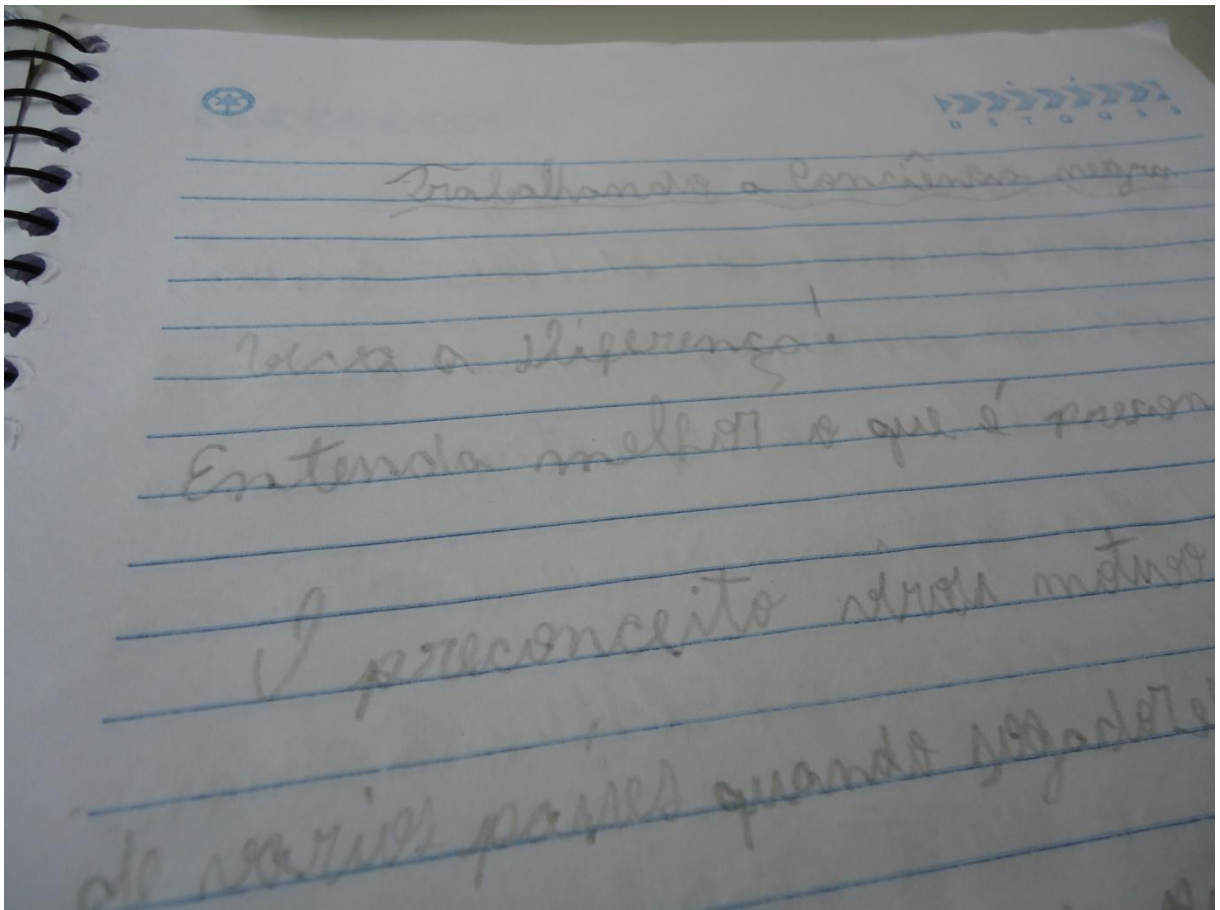 Trabalhando a Conciência negra
Viva a Diferença!
Entenda melhor o que é precon
O preconceito virou motivo
de varios países quando jogadore